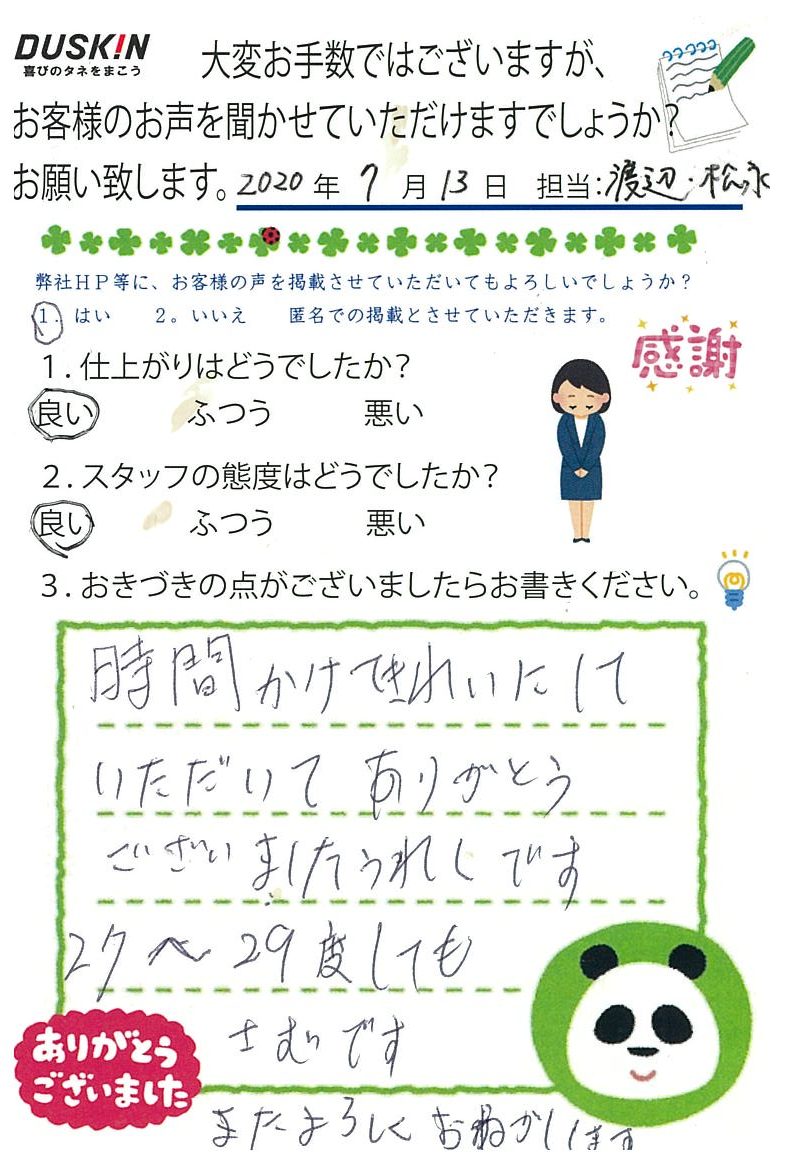 DUSKIN
喜びのタネをまこう
大変お手数ではございますが、
お客様のお声を聞かせていただけますでしょうか?
お願い致します。2020年 7月13日 担当:渡辺・松永
弊社HP等に、お客様の声を掲載させていただいてもよろしいでしょうか?
1. はい 2。いいえ 匿名での掲載とさせていただきます。
感謝
1.仕上がりはどうでしたか?
良い ふつう 悪い
2.スタッフの態度はどうでしたか?
良い ふつう 悪い
3.おきづきの点がございましたらお書きください。
時間かけてきれいにして
いただいてありがとう
ございましたうれしです
27〜29度しても
さむいです
またよろしくおねがしします
ありがとう
ございました